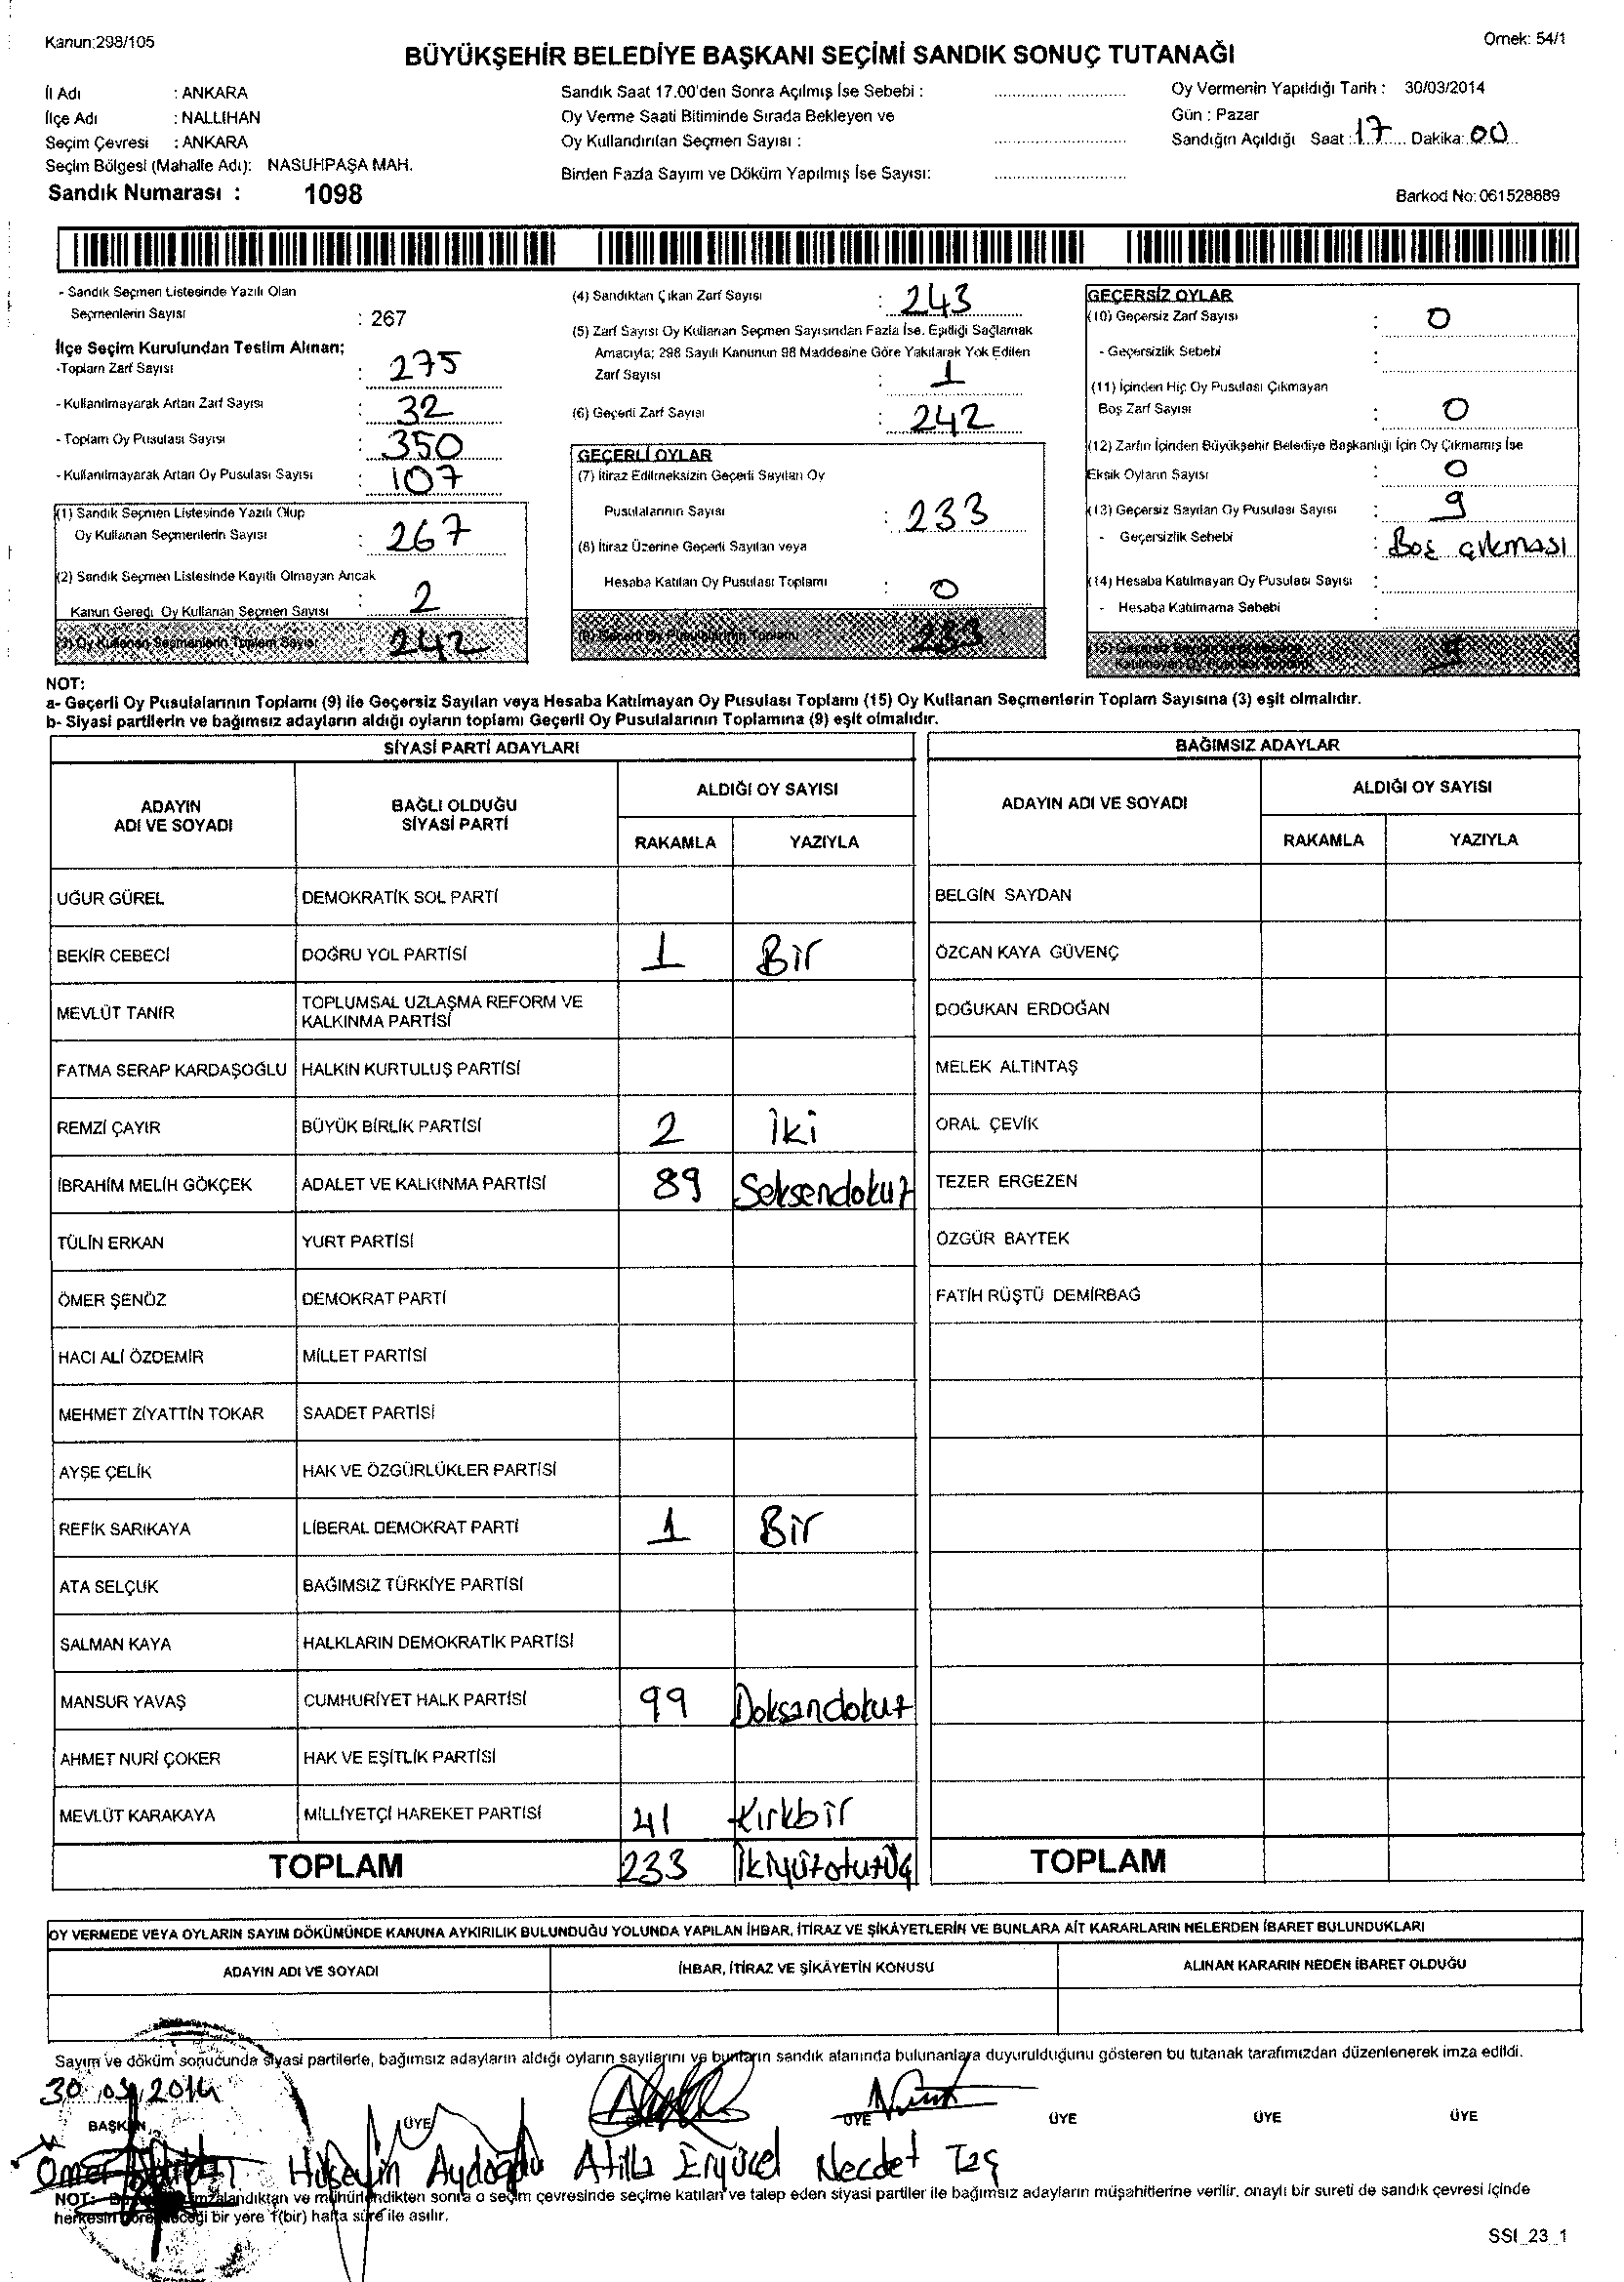 Kanun:298/105
Örnek: 54/1
BÜYÜKŞEHİR BELEDİYE BAŞKANI SEÇİMİ SANDIK SONUÇ TUTANAĞI
İl Adı : ANKARA
İlçe Adı : NALLIHAN
Seçim Çevresi : ANKARA
Seçim Bölgesi (Mahalle Adı): NASUHPAŞA MAH.
Sandık Numarası : 1098
Sandık Saat 17.00'den Sonra Açılmış İse Sebebi :
Oy Verme Saati Bitiminde Sırada Bekleyen ve
Oy Kullandırılan Seçmen Sayısı :
Birden Fazla Sayım ve Döküm Yapılmış İse Sayısı:
Oy Vermenin Yapıldığı Tarih : 30/03/2014
Gün : Pazar
Sandığın Açıldığı Saat : 17 Dakika: 00
Barkod No: 061528889
- Sandık Seçmen Listesinde Yazılı Olan
Seçmenlerin Sayısı : 267
İlçe Seçim Kurulundan Teslim Alınan;
-Toplam Zarf Sayısı : 275
- Kullanılmayarak Artan Zarf Sayısı : 32
- Toplam Oy Pusulası Sayısı : 350
- Kullanılmayarak Artan Oy Pusulası Sayısı : 107
(1) Sandık Seçmen Listesinde Yazılı Olup
Oy Kullanan Seçmenlerin Sayısı : 267
(2) Sandık Seçmen Listesinde Kayıtlı Olmayan Ancak
Kanun Gereği Oy Kullanan Seçmen Sayısı : 2
(3) Oy Kullanan Seçmenlerin Toplam Sayısı 242
(4) Sandıktan Çıkan Zarf Sayısı : 243
(5) Zarf Sayısı Oy Kullanan Seçmen Sayısından Fazla İse, Eşitliği Sağlamak
Amacıyla; 298 Sayılı Kanunun 98 Maddesine Göre Yakılarak Yok Edilen
Zarf Sayısı : 1
(6) Geçerli Zarf Sayısı : 242
GEÇERLİ OYLAR
(7) İtiraz Edilmeksizin Geçerli Sayılan Oy
Pusulalarının Sayısı : 233
(8) İtiraz Üzerine Geçerli Sayılan veya
Hesaba Katılan Oy Pusulası Toplamı : 0
(9) Geçerli Oy Pusulalarının Toplamı 233
GEÇERSİZ OYLAR
(10) Geçersiz Zarf Sayısı : 0
- Geçersizlik Sebebi :
(11) İçinden Hiç Oy Pusulası Çıkmayan
Boş Zarf Sayısı : 0
(12) Zarfın İçinden Büyükşehir Belediye Başkanlığı İçin Oy Çıkmamış İse
Eksik Oyların Sayısı : 0
(13) Geçersiz Sayılan Oy Pusulası Sayısı : 9
- Geçersizlik Sebebi : Boş çıkması
(14) Hesaba Katılmayan Oy Pusulası Sayısı :
- Hesaba Katılmama Sebebi :
(15) Geçersiz Sayılan veya Hesaba
Katılmayan Oy Pusulası Toplamı 9
NOT:
a- Geçerli Oy Pusulalarının Toplamı (9) ile Geçersiz Sayılan veya Hesaba Katılmayan Oy Pusulası Toplamı (15) Oy Kullanan Seçmenlerin Toplam Sayısına (3) eşit olmalıdır.
b- Siyasi partilerin ve bağımsız adayların aldığı oyların toplamı Geçerli Oy Pusulalarının Toplamına (9) eşit olmalıdır.
SİYASİ PARTİ ADAYLARI
ADAYIN ADI VE SOYADI
BAĞLI OLDUĞU SİYASİ PARTİ
ALDIĞI OY SAYISI
RAKAMLA YAZIYLA
UĞUR GÜREL DEMOKRATİK SOL PARTİ
BEKİR CEBECİ DOĞRU YOL PARTİSİ 1 Bir
MEVLÜT TANIR TOPLUMSAL UZLAŞMA REFORM VE KALKINMA PARTİSİ
FATMA SERAP KARDAŞOĞLU HALKIN KURTULUŞ PARTİSİ
REMZİ ÇAYIR BÜYÜK BİRLİK PARTİSİ 2 İki
İBRAHİM MELİH GÖKÇEK ADALET VE KALKINMA PARTİSİ 89 Seksendokuz
TÜLİN ERKAN YURT PARTİSİ
ÖMER ŞENÖZ DEMOKRAT PARTİ
HACI ALİ ÖZDEMİR MİLLET PARTİSİ
MEHMET ZİYATTİN TOKAR SAADET PARTİSİ
AYŞE ÇELİK HAK VE ÖZGÜRLÜKLER PARTİSİ
REFİK SARIKAYA LİBERAL DEMOKRAT PARTİ 1 Bir
ATA SELÇUK BAĞIMSIZ TÜRKİYE PARTİSİ
SALMAN KAYA HALKLARIN DEMOKRATİK PARTİSİ
MANSUR YAVAŞ CUMHURİYET HALK PARTİSİ 99 Doksandokuz
AHMET NURİ ÇOKER HAK VE EŞİTLİK PARTİSİ
MEVLÜT KARAKAYA MİLLİYETÇİ HAREKET PARTİSİ 41 Kırkbir
TOPLAM 233 İkiyüzotuzüç
BAĞIMSIZ ADAYLAR
ADAYIN ADI VE SOYADI
ALDIĞI OY SAYISI
RAKAMLA YAZIYLA
BELGİN SAYDAN
ÖZCAN KAYA GÜVENÇ
DOĞUKAN ERDOĞAN
MELEK ALTINTAŞ
ORAL ÇEVİK
TEZER ERGEZEN
ÖZGÜR BAYTEK
FATİH RÜŞTÜ DEMİRBAĞ
TOPLAM
OY VERMEDE VEYA OYLARIN SAYIM DÖKÜMÜNDE KANUNA AYKIRILIK BULUNDUĞU YOLUNDA YAPILAN İHBAR, İTİRAZ VE ŞİKÂYETLERİN VE BUNLARA AİT KARARLARIN NELERDEN İBARET BULUNDUKLARI
ADAYIN ADI VE SOYADI İHBAR, İTİRAZ VE ŞİKÂYETİN KONUSU ALINAN KARARIN NEDEN İBARET OLDUĞU
Sayım ve döküm sonucunda siyasi partilerle, bağımsız adayların aldığı oyların sayılarını ve bunların sandık alanında bulunanlara duyurulduğunu gösteren bu tutanak tarafımızdan düzenlenerek imza edildi.
30.03.2014
BAŞKAN ÜYE ÜYE ÜYE ÜYE ÜYE ÜYE
Ömer Hüseyin Aydoğdu Atilla Eryücel Necdet Taş
NOT: imzalandıktan ve mühürlendikten sonra o seçim çevresinde seçime katılan ve talep eden siyasi partiler ile bağımsız adayların müşahitlerine verilir, onaylı bir sureti de sandık çevresi içinde
herkesin göreceği bir yere 1(bir) hafta süre ile asılır.
SSI_23_1